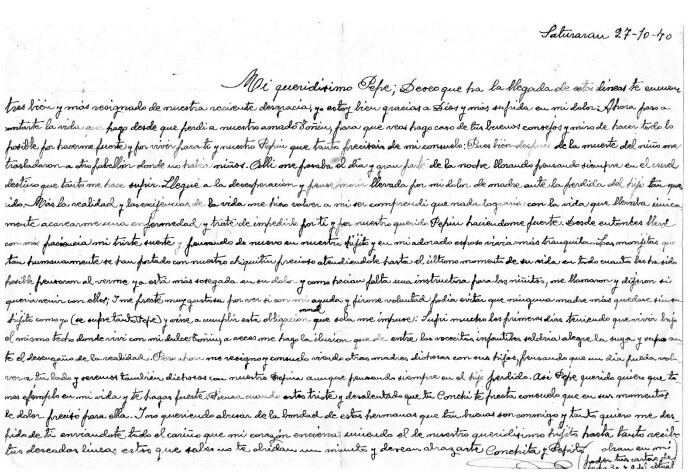 Saturraran 27-10-40
Mi queridisimo Pepe; Deseo que ha la llegada de estas lineas te encuen-
tres bien y más resignado de nuestra reciente desgracia; yo estoy bien gracias a Dios y más sufrida en mi dolor. Ahora paso a
contarte la vida que hago desde que perdi a nuestro amado Toñin, para que veas hago caso de tus buenos consejos y miro de hacer todo lo
posible por hacerme fuerte y por vivir para ti y nuestro Pepin que tanto precisais de mi consuelo. Pues bien despues de la muerte del niño me
trasladaron a otro pabellón donde no habia niños. Alli me pasaba el dia y gran parte de la noche llorando pensando siempre en el cruel
destino que tanto me hace sufrir. Llegué a la desesperación y pense morir llevada por mi dolor de madre ante la perdida del hijo tan que-
rido. Más la realidad y las exigencias de la vida me hizo volver a mi ser comprendi que nada lograria con la vida que llevaba única-
mente acarrearme una enfermedad y traté de impedirlo por ti y por nuestro querido Pepin haciendome fuerte. Desde entonces llevé
con más paciencia mi triste suerte y pensando de nuevo en nuestro hijito y en mi adorado esposo vivia más tranquila. Las monjitas que
tan humanamente se han portado con nuestro chiquitin precioso atendiendole hasta el último momento de su vida en todo cuanto les ha sido
posible pensaron al verme ya está más sosegada en su dolor y como hacian falta una instructora para los niñitos, me llamaron y dijeron si
queria venir con ellos; I me presté muy gustosa por ver si con mi ayuda y firme voluntad podia evitar que ninguna madre más quedase sin su
hijito como yo (se supre tanto Pepe) y vine a cumplir esta obligación que sola me impuse. Sufri mucho los primeros dias teniendo que vivir bajo
el mismo techo donde vivi con mi dulce Toñin; a veces me hago la ilusion que de entre las vocecitas infantiles saldria alegre la suya y supo an-
te el desengaño de la realidad. Pero ahora me resigno y consuelo viendo otras madres dichosas con sus hijos, pensando que un dia pueda vol-
ver a tu lado y seremos tambien dichosos con nuestro Pepin aunque pensando siempre en el hijo perdido. Asi Pepe querido quien que to-
mes ejemplo en mi vida y te hagas fuerte. Piensa cuando estes triste y desalentado que tu Conchi te presta consuelo que en sus momentos
de dolor precisó para ella. I no queriendo abusar de la bondad de estas hermanas que tan buenas son conmigo y tanto quiero me des-
pido de ti enviandote todo el cariño que mi corazón encierra uniendo el de nuestro queridisimo hijito hasta tanto recibo
tus deseadas lineas estos que sabes no te olvidan un minuto y desean abrazarte Conchita y Pepito
obran en mi
poder tus cartas de